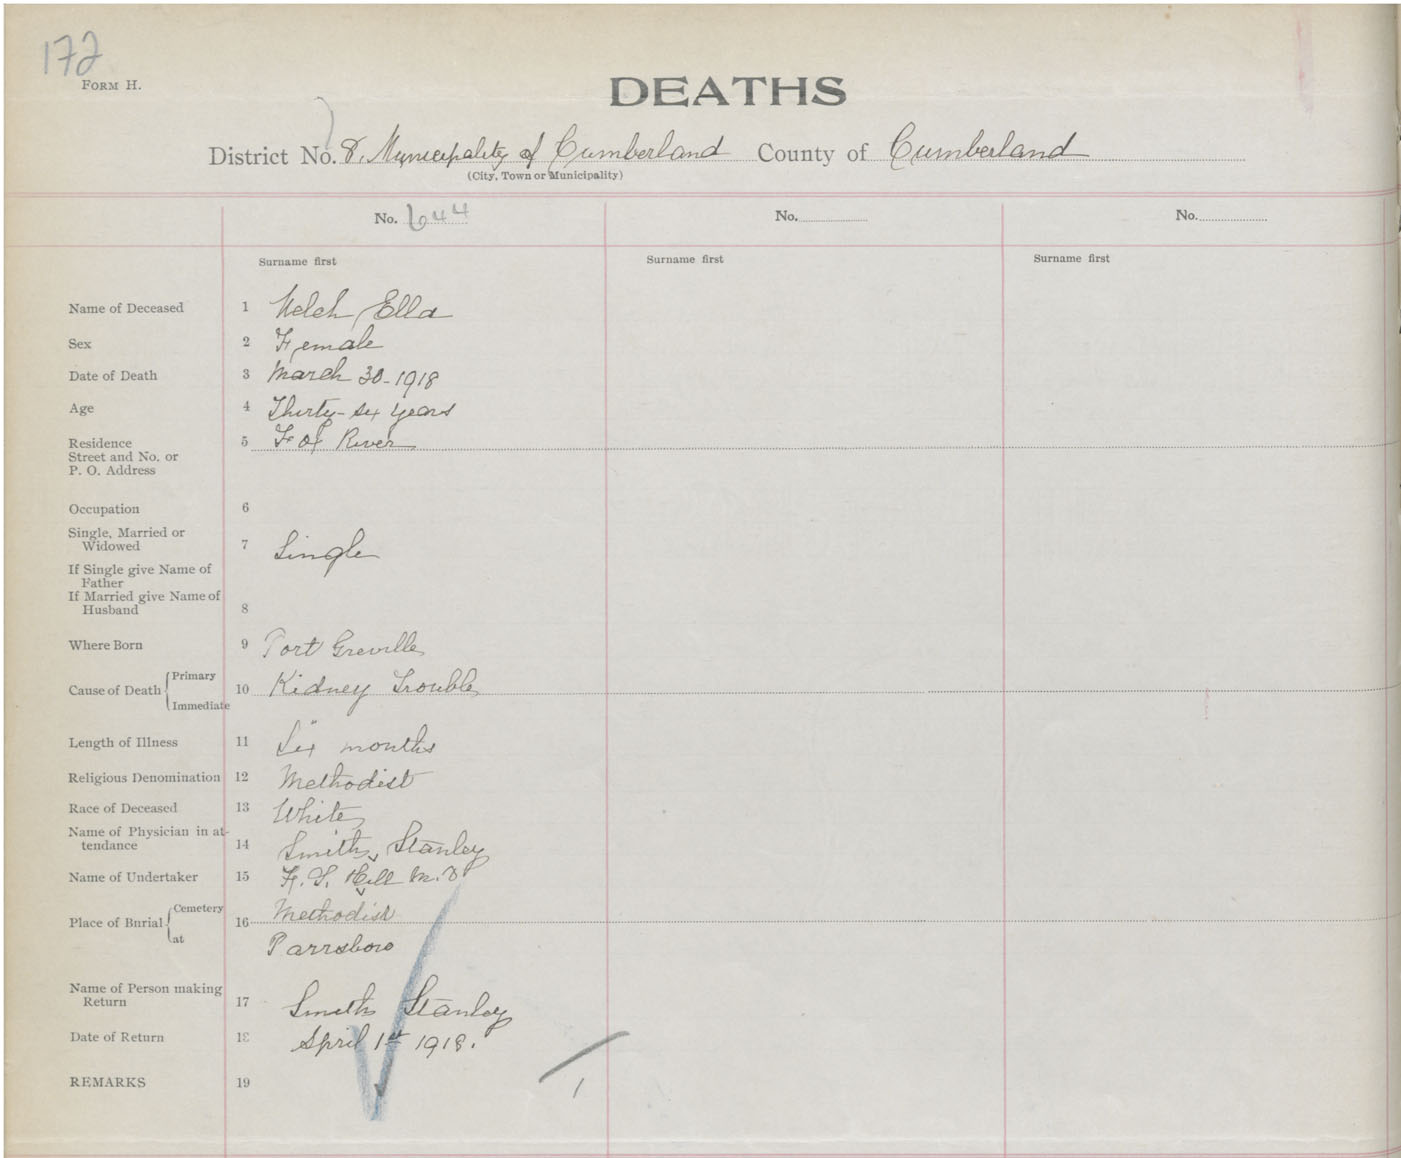 172
FORM H.
DEATHS
District No. 8, Municipality of Cumberland County of Cumberland
(City, Town or Municipality)
No. 644 No. No.
Surname first Surname first Surname first
Name of Deceased 1 Welch, Ella
Sex 2 Female
Date of Death 3 March 30-1918
Age 4 Thirty-six years
Residence 5 Fox River
Street and No. or
P. O. Address
Occupation 6
Single, Married or
Widowed 7 Single
If Single give Name of
Father
If Married give Name of
Husband 8
Where Born 9 Port Greville
Cause of Death { Primary
10 Kidney Trouble
Immediate
Length of Illness 11 Six months
Religious Denomination 12 Methodist
Race of Deceased 13 White
Name of Physician in at-
tendance 14 Smith, Stanley
Name of Undertaker 15 Hill M.D
Place of Burial { Cemetery 16 Methodist
at Parrsboro
Name of Person making
Return 17 Smith Stanley
Date of Return 18 April 1st 1918.
REMARKS 19